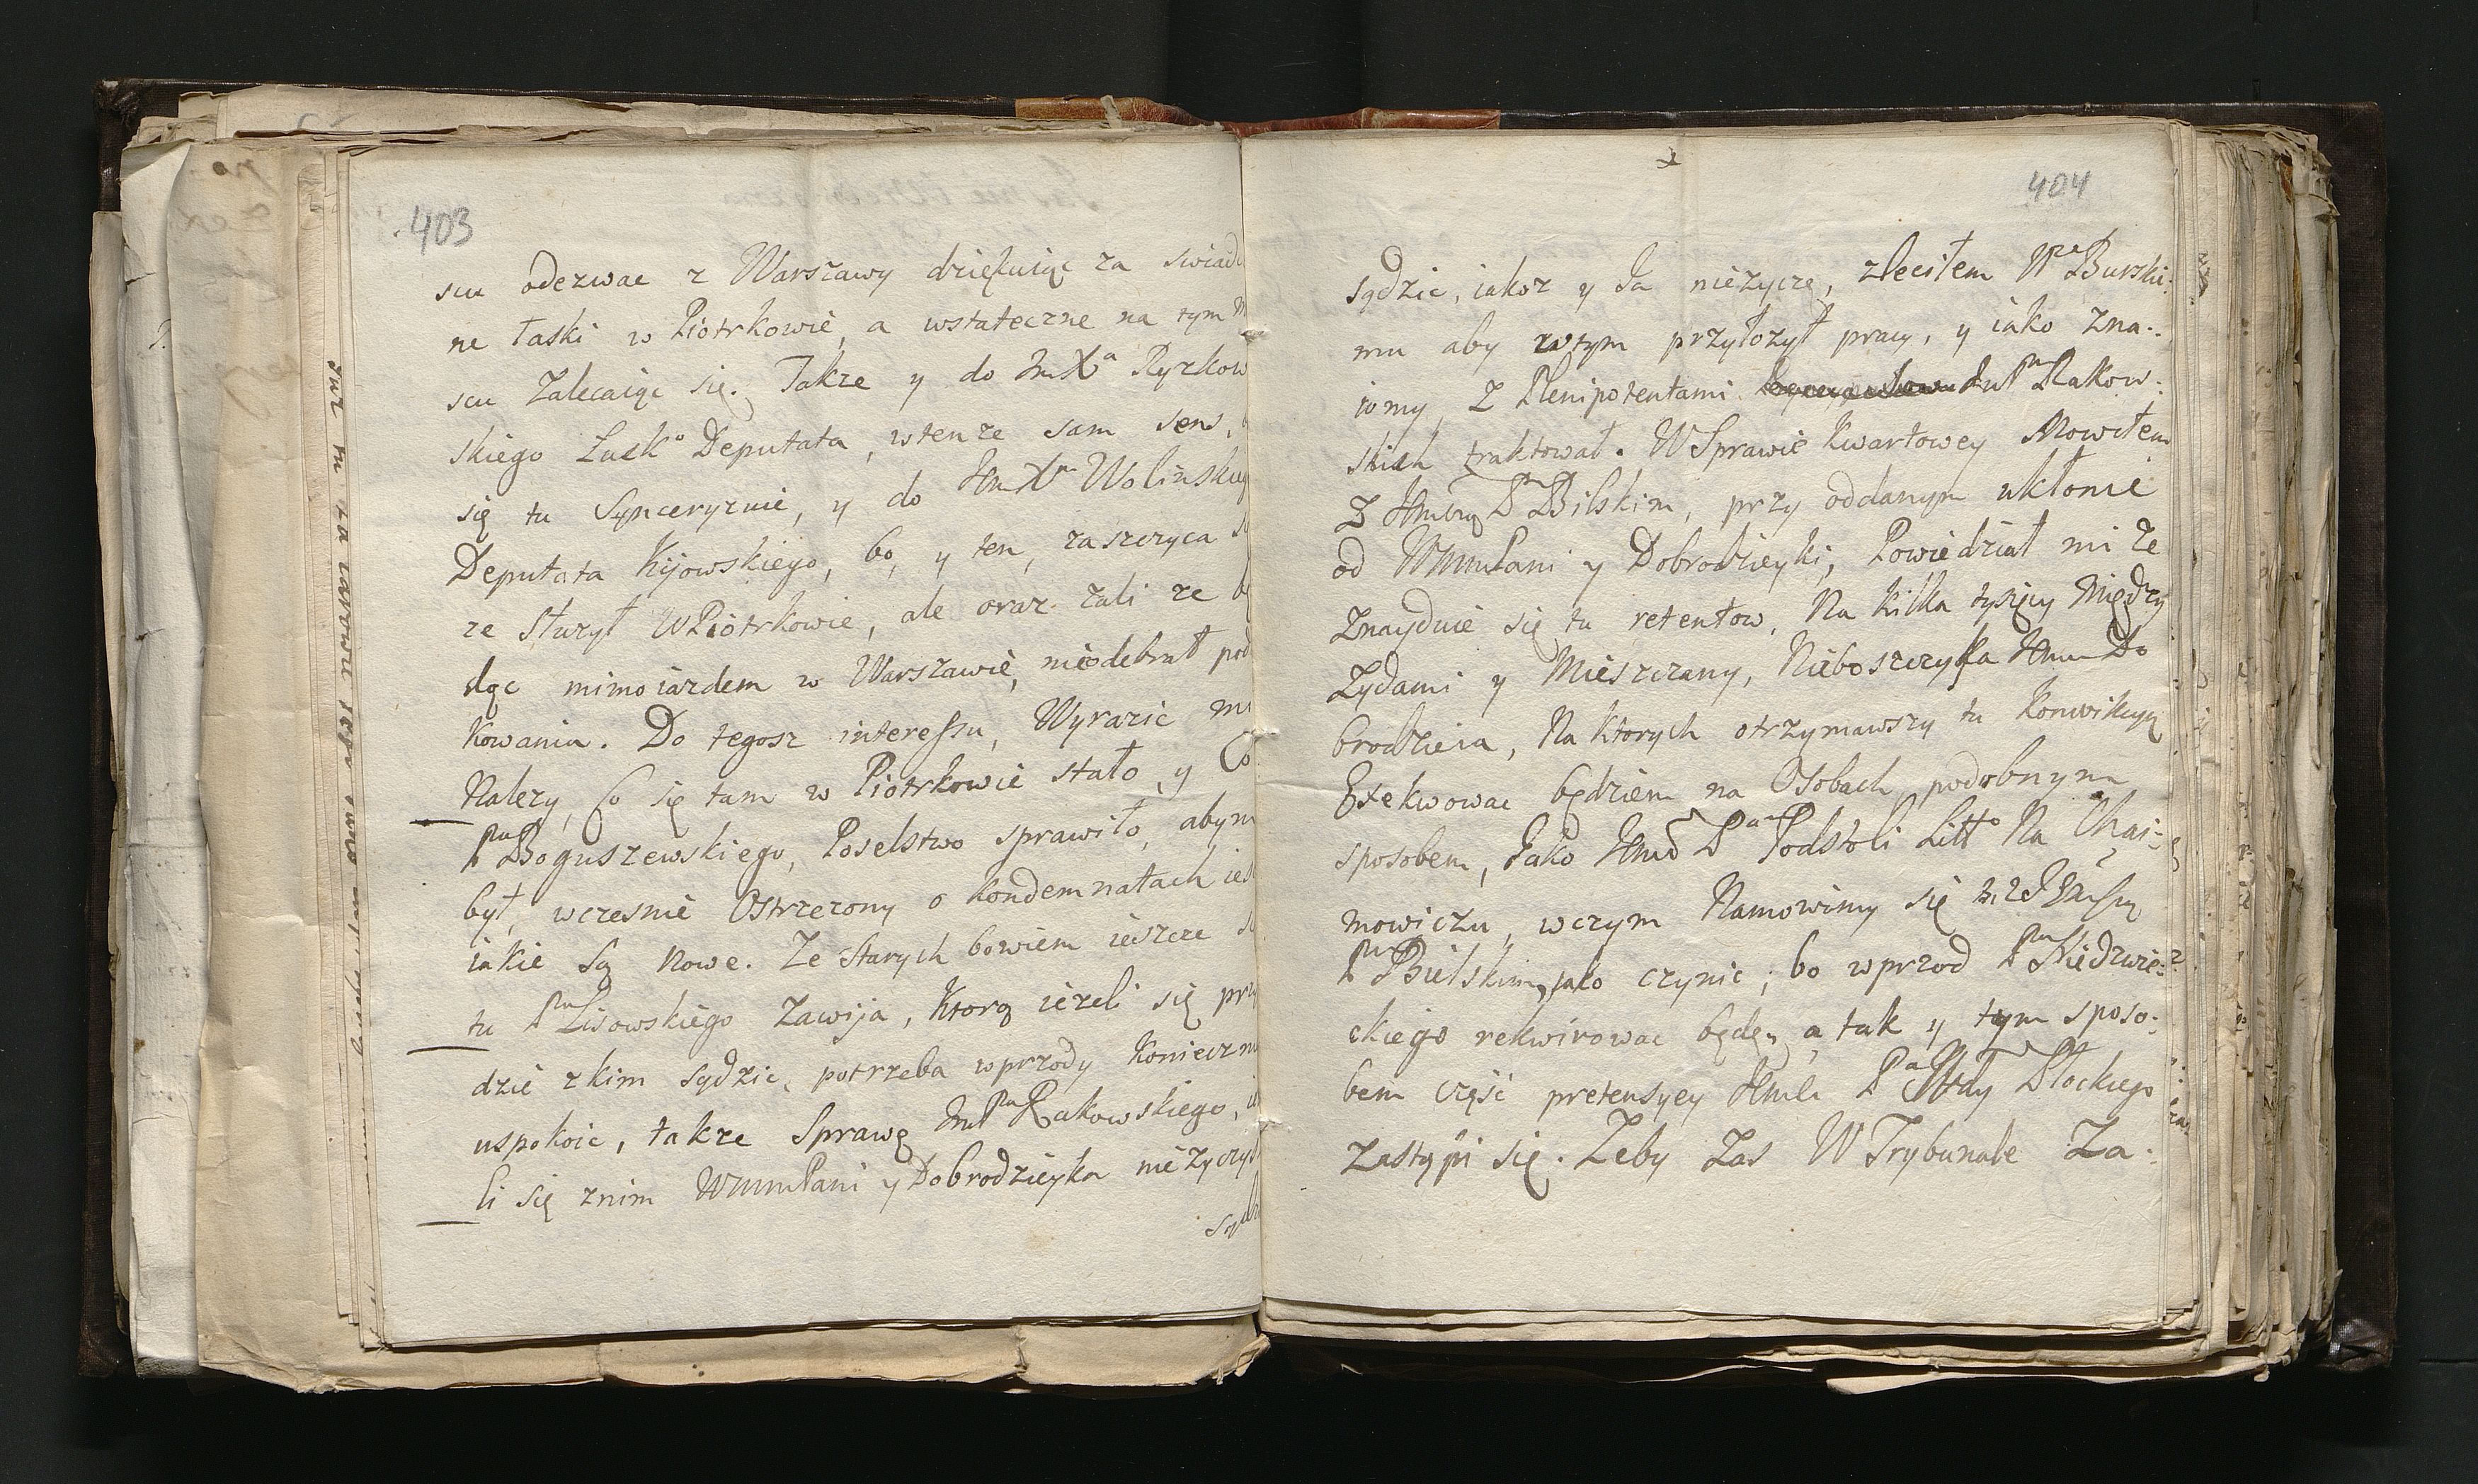 403
scu odezwac z Warszawy dziękuiąc za swiad
ne łaski w Piotrkowie, a wstateczne na tym M
scu Zalecaiąc się. Takze y do Jm Xa Ryzkow
skiego Łuck° Deputata, wtenze sam sens,
się tu Syncerycznie, y do Jm Xa Wolinskieg
Deputata Kijowskiego, bo, y ten, zaszczyca s
ze słuzył WPiotrkowie, ale oraz zali ze b
dąc mimoiazdem w Warszawie, nieodebrał pod
kowania. Do tegosz interessu, Wyrazic mi
Nalezy, Co się tam w Piotrkowie stało, y Co
Pna Boguszewskiego, Poselstwo sprawiło, abym
był, wczesnie Ostrzezony o kondemnatach ies
iakie Są Nowe. Ze Starych bowiem ieszcze s
tu Pna Lisowskiego Zawija, Ktorą iezeli się prz
dzie zkim sądzic, potrzeba wprzody Konieczn
uspokoic, takze Sprawę Jm Pna Rakowskiego,
li się znim WmmPani y Dobrodzieyka nie zyczy
sąd
404
sądzic, iakoz y Ja nieżyczę, zleciłem Burski:
mu aby wtym przyłozył pracy, y iako Zna:
iomy, Z Plenipotentami Jm Pna Rakow:
skich traktował. WSprawie Kwartowey Mowiłem
Z Pm Bilskim, przy oddanym ukłonie
od WmmPani y Dobrodzieyki, Powiedział mi Ze
Znayduie się tu retentow, Na Kilka tysięcy Między
Zydami y Mieszczany, Nieboszczyka Jmm Do
brodzieia, Na Ktorych otrzymawszy tu Konwikcyą
Exekwowac będziem na Osobach podobnym
sposobem, Jako Pan Podstoli Litt° Na Chai:
mowiczu, wczym Namowimy się
Pm Bielskim, jako czynic; bo wprzod Pna Niedzwie:
ckiego rekwirowac będę, a tak y tym sposo:
bem część pretensyey Pa Wdy Płockiego
Zastąpi się. Zeby Zas W Trybunale Za: